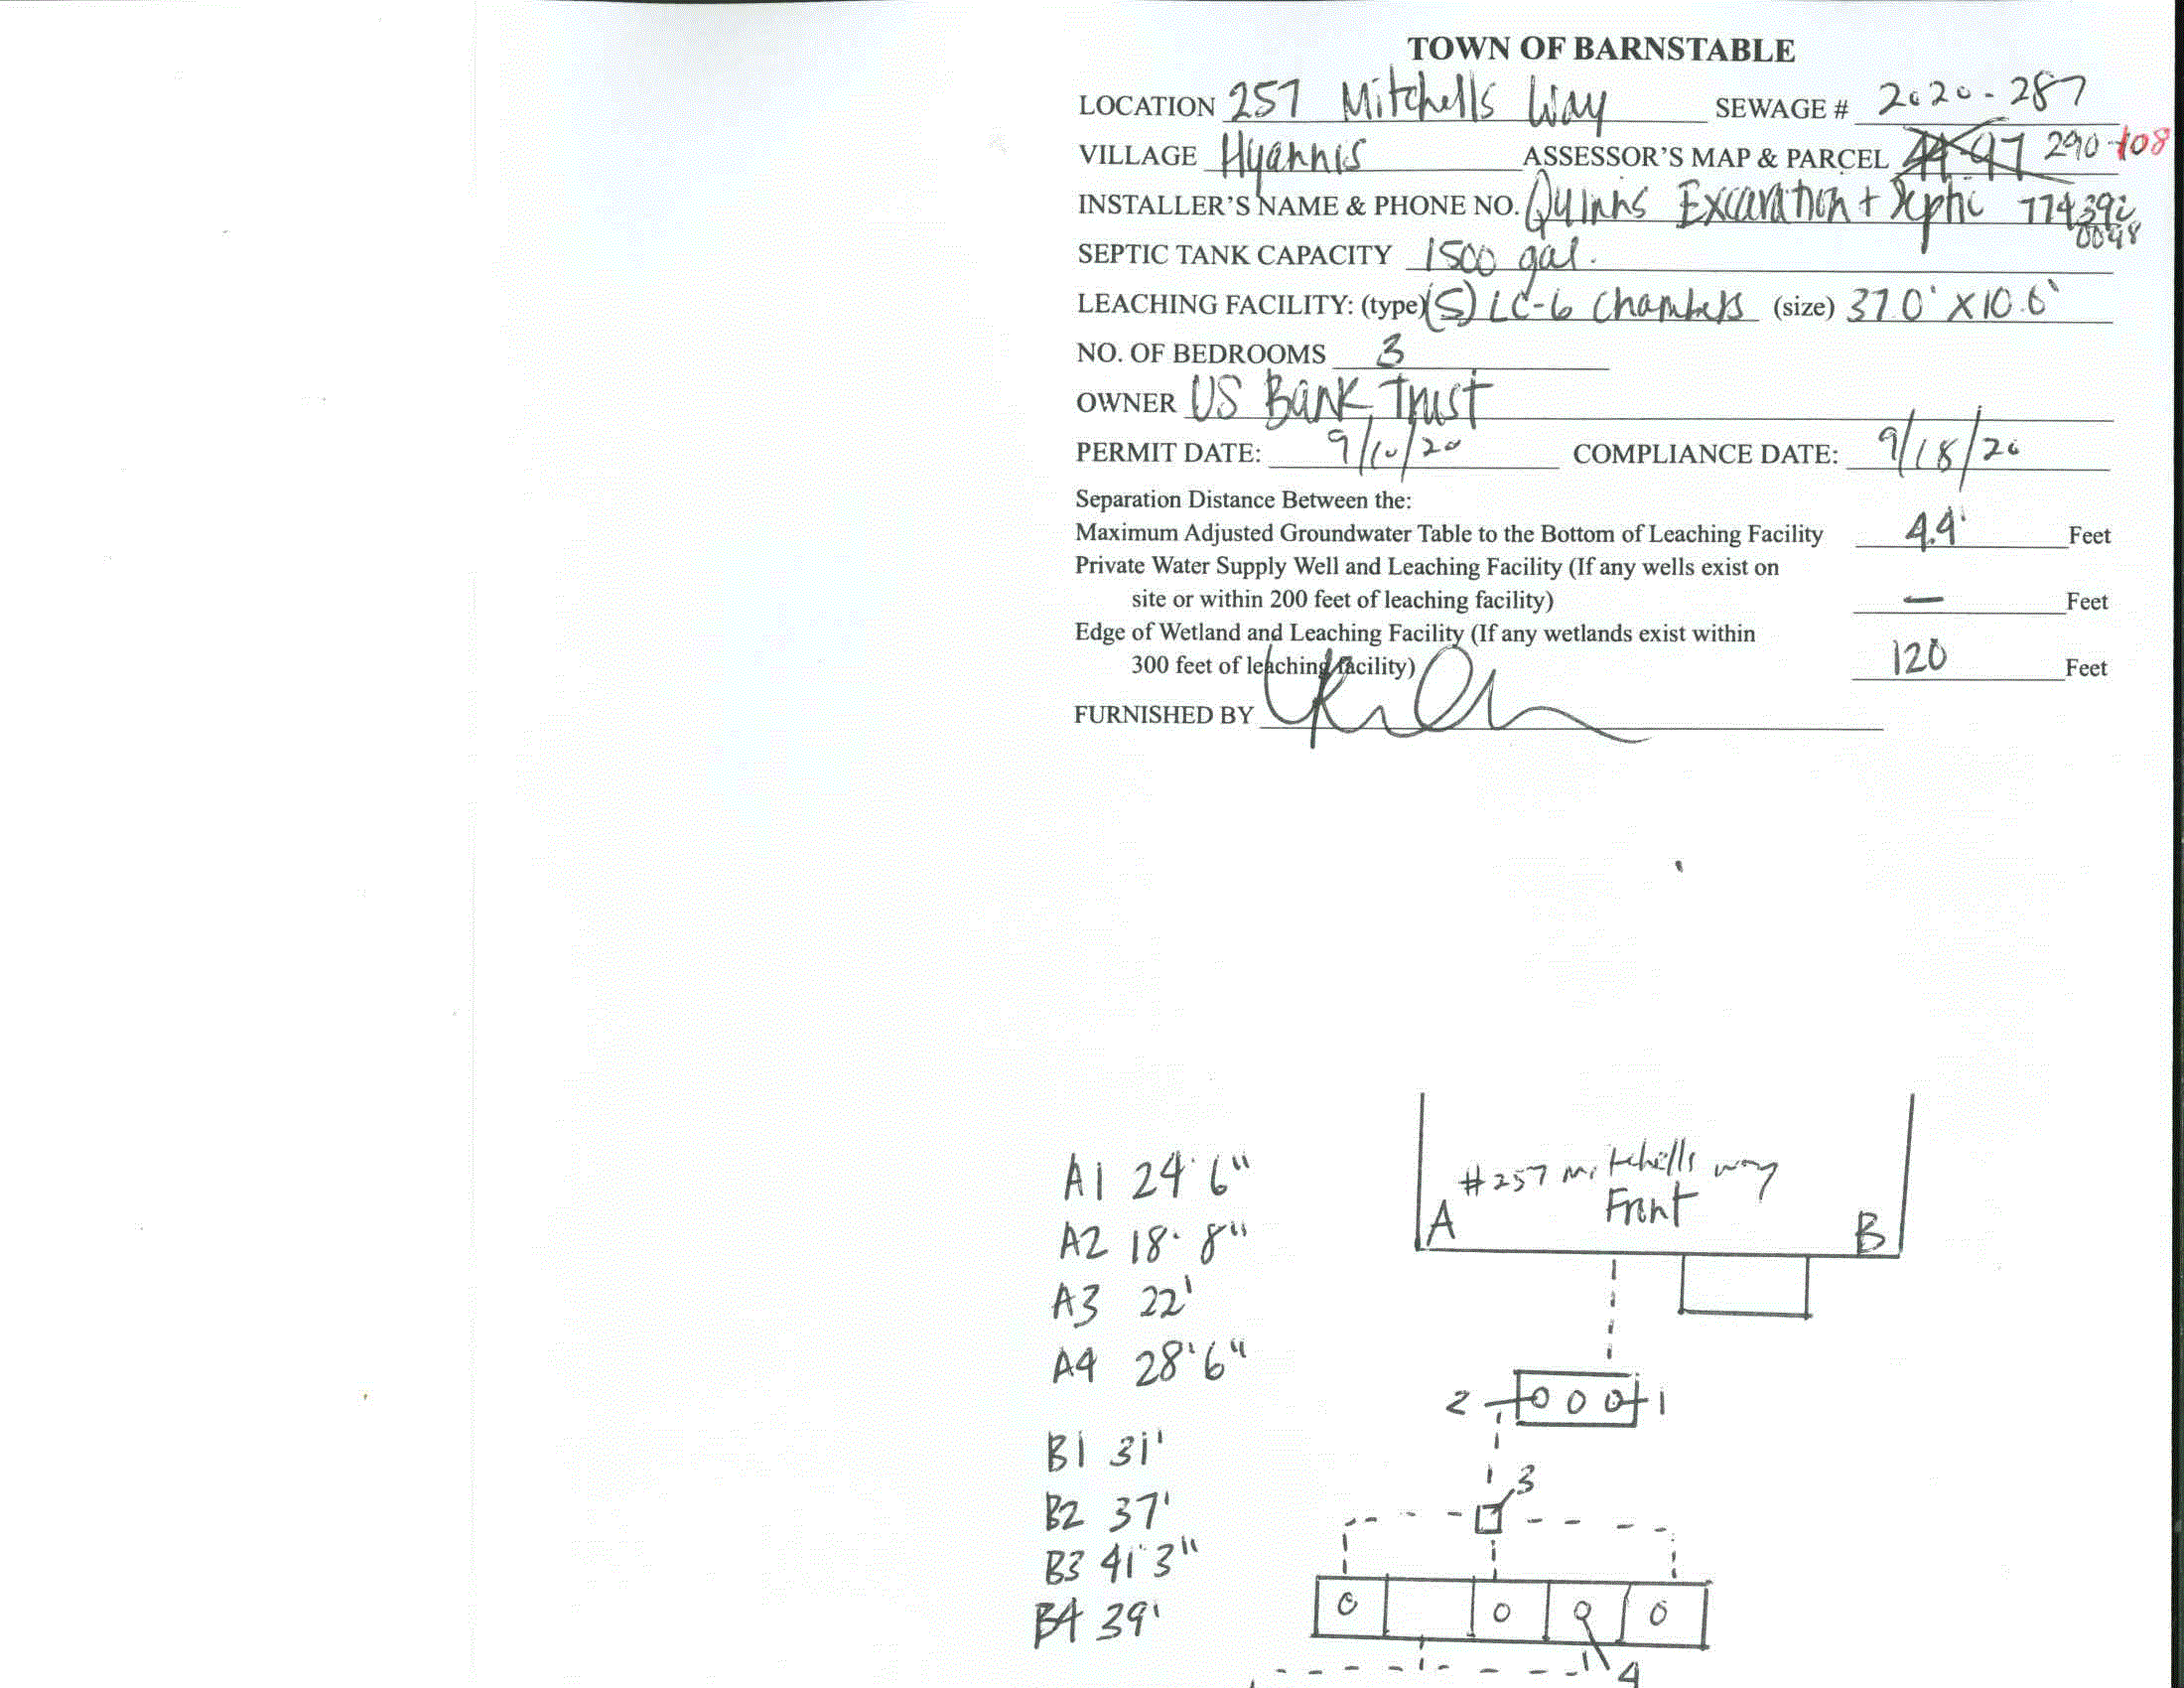 TOWN OF BARNSTABLE
LOCATION 257 Mitchells Way SEWAGE # 2020-287
VILLAGE Hyannis ASSESSOR'S MAP & PARCEL 290-108
INSTALLER'S NAME & PHONE NO. Quinns Excavation + Septic 774 392 0098
SEPTIC TANK CAPACITY 1500 gal.
LEACHING FACILITY: (type) (5) LC-6 Chambers (size) 37.0' X 10.0'
NO. OF BEDROOMS 3
OWNER US Bank Trust
PERMIT DATE: 9/10/20 COMPLIANCE DATE: 9/18/20
Separation Distance Between the:
Maximum Adjusted Groundwater Table to the Bottom of Leaching Facility 4.9' Feet
Private Water Supply Well and Leaching Facility (If any wells exist on
site or within 200 feet of leaching facility) — Feet
Edge of Wetland and Leaching Facility (If any wetlands exist within
300 feet of leaching facility) 120 Feet
FURNISHED BY
A1 24' 6"
A2 18' 8"
A3 22'
A4 28' 6"
B1 31'
B2 37'
B3 41' 3"
B4 39'
#257 Mitchells way
Front
A B
2 1
3
4